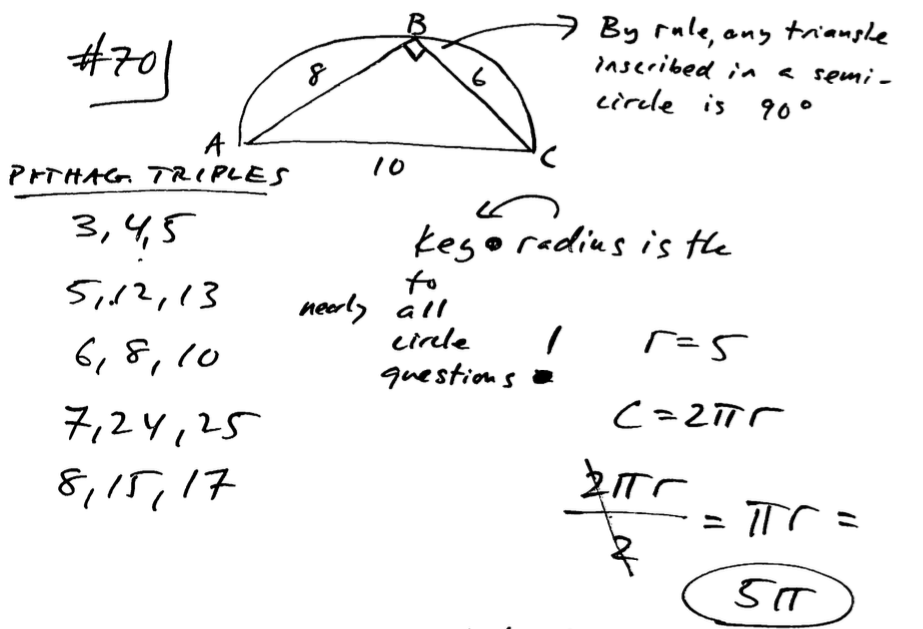 #70
B
8
6
A
10
C
By rule, any triangle
inscribed in a semi-
circle is 90°
PYTHAG. TRIPLES
3, 4, 5
5, 12, 13
6, 8, 10
7, 24, 25
8, 15, 17
Key radius is the
to
nearly all
circle !
questions
r = 5
C = 2πr
2πr
= πr =
2
5π